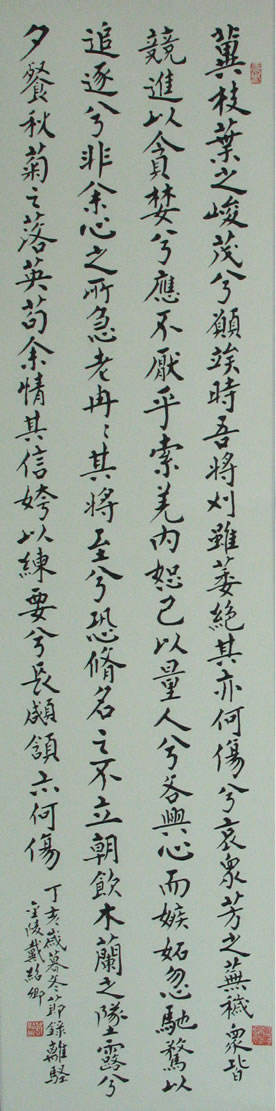 冀枝葉之峻茂兮願竢時吾將刈雖萎絕其亦何傷兮哀眾芳之蕪穢眾皆
競進以貪婪兮應不厭乎索羌內恕己以量人兮各興心而嫉妬忽馳騖以
追逐兮非余心之所急老冉〻其將至兮恐脩名之不立朝飲木蘭之墜露兮
夕餐秋菊之落英苟余情其信姱以練要兮長顑頷亦何傷
丁亥歲暮冬節錄離騷
金陵戴紹卿